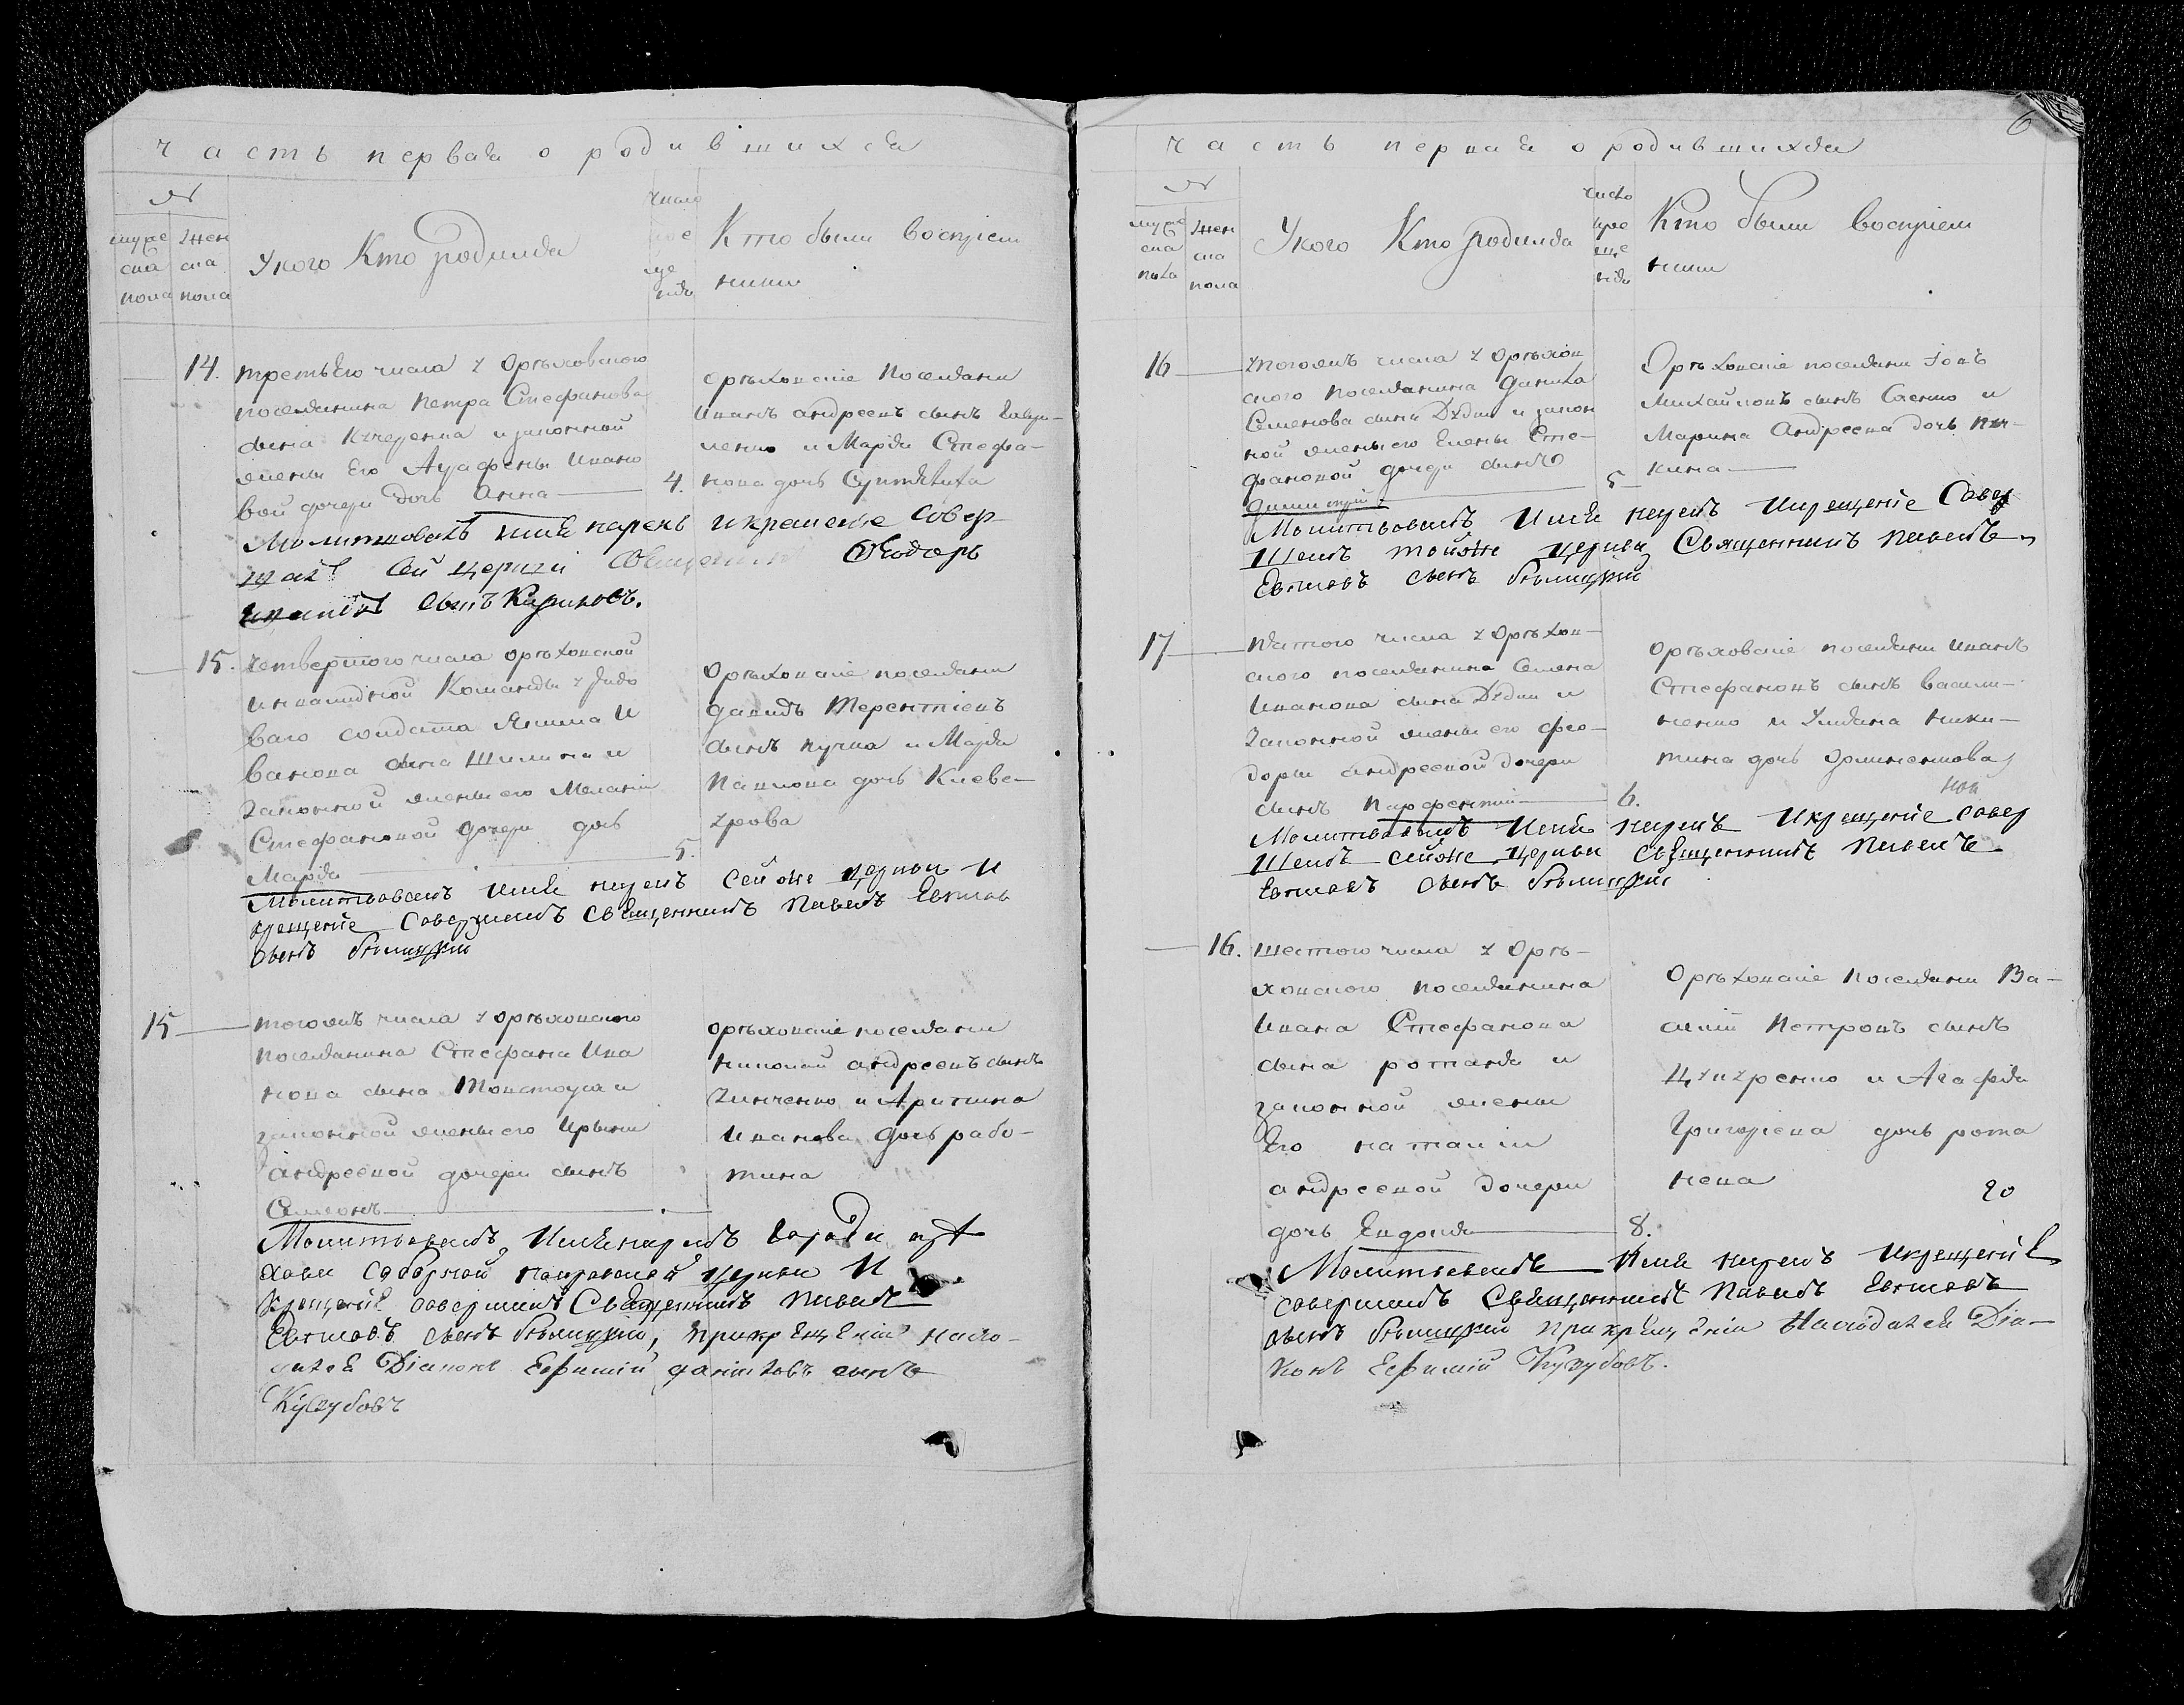 часть первая о родившихся
№
муже
ска
пола
жен
ска
пола
Укого Кто родился
число
Кто были восприем
ники
14. третьего числа у Орѣховского
поселянина Петра Стефанова
сына и законной
жены Его Агафены Ивано
вой дочери дочь Анна
4.
орѣховские поселяни
Иванъ андреевъ сынъ Гаври-
ленко и Марія Стефа-
нова дочь
Молитвовалъ имя нарекъ икрещение Совер
шалъ Сей церкви Священникъ Ѳеодоръ
сынъ
15. четвертого числа орѣховской
инвалидной Команды у
ваго солдата Якима И
ванова сына Шилина и
законной жены его Меланіи
Стефановой дочери дочь
Марія
5.
Орѣховские поселяни
давидъ Терентіевъ
сынъ пугча и Марія
Павлова дочь Клеве-
трова
Молитвовалъ имя нарекъ сей же церкви И
крещеніе Совершилъ Священникъ Павелъ Евтиов
сынъ Бѣлицкій
15 тогожъ числа у орѣховского
поселянина Стефана Ива
нова сына Толстоуса и
законной жены его Ирины
андреевой дочери сынъ
Симеонъ
орѣховские поселяни
николай андреевъ сынъ
Зинченко и Иринина
Иванова дочь рабо-
тина
Молитвовалъ, Имя нарекъ города орѣ
хова Соборной покровской церкви И
Крещеніе совершилъ Священникъ Павелъ
Евтиовъ сынъ Бѣлицкій, прикрещеніи насло-
дался Діаконъ Ефимій даниловъ сынъ
Кузубовъ
6
часть первая о родившихся
№
муже
ска
пола
жен
ска
пола
Укого Кто родился
число
кре
ще
нія
Кто были восприем
ники
16 тогожъ числа у Орѣхов
ского поселянина данила
Семенова сына Дудки и закон
ной жены его Елены Сте-
фановой дочери сынъ
Димитрій
5
Орѣховские поселяни Іовъ
Михайловъ сынъ Саенко и
Марина Андреева дочь
кина
Молитвовалъ Имя нарекъ Икрещеніе Совер
Шилъ тойже церкви Священникъ Павелъ
Евтиовъ сынъ Бѣлицкій
17 пятого числа у Орѣхов-
ского поселянина Семена
Иванова сына Дудки и
законной жены его фео-
доры андреевой дочери
сынъ Парфентій
6.
орѣховские поселяни иванъ
Стефановъ сынъ васили-
ненко и Улияна ники-
тина дочь
Молитвовалъ Имя нарекъ Икрещеніе совер
Шилъ сейже церкви священникъ Павелъ
Евтиовъ сынъ Бѣлицкій
16. шестого числа у Орѣ-
ховского поселянина
Ивана Стефанова
сына ротаня и
законной жены
Его наталіи
андреевой дочери
дочь Евдокія
8.
Орѣховские поселяни Ва-
силій Петровъ сынъ
и Агафія
Григоріева дочь рота
нева
20
Молитвовалъ Имя нарекъ икрещеніе
совершилъ Священникъ Павелъ Евтиовъ
сынъ Бѣлицкій прикрещеніи Наслодался Діа-
конъ Ефимій Кузубовъ.